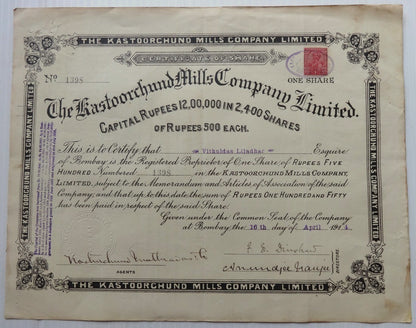 THE KASTOORCHUND MILLS COMPANY LIMITED
CERTIFICATE OF SHARE.
No 1398
ONE SHARE
The Kastoorchund Mills Company Limited.
CAPITAL RUPEES 12,00,000 IN 2,400 SHARES
OF RUPEES 500 EACH.
This is to Certify that Vithuldas Liladhar Esquire
of Bombay is the Registered Proprietor of One Share of RUPEES FIVE
HUNDRED Numbered 1398 in the KASTOORCHUND MILLS COMPANY,
LIMITED, subject to the Memorandum and Articles of Association of the said
Company; and that up to this date the sum of RUPEES ONE HUNDRED AND FIFTY
has been paid in respect of the said Share.
Given under the Common Seal of the Company
at Bombay, the 16th day of April 191
AGENTS
DIRECTORS
THE KASTOORCHUND MILLS COMPANY LIMITED
THE KASTOORCHUND MILLS COMPANY LIMITED
THE KASTOORCHUND MILLS COMPANY LIMITED